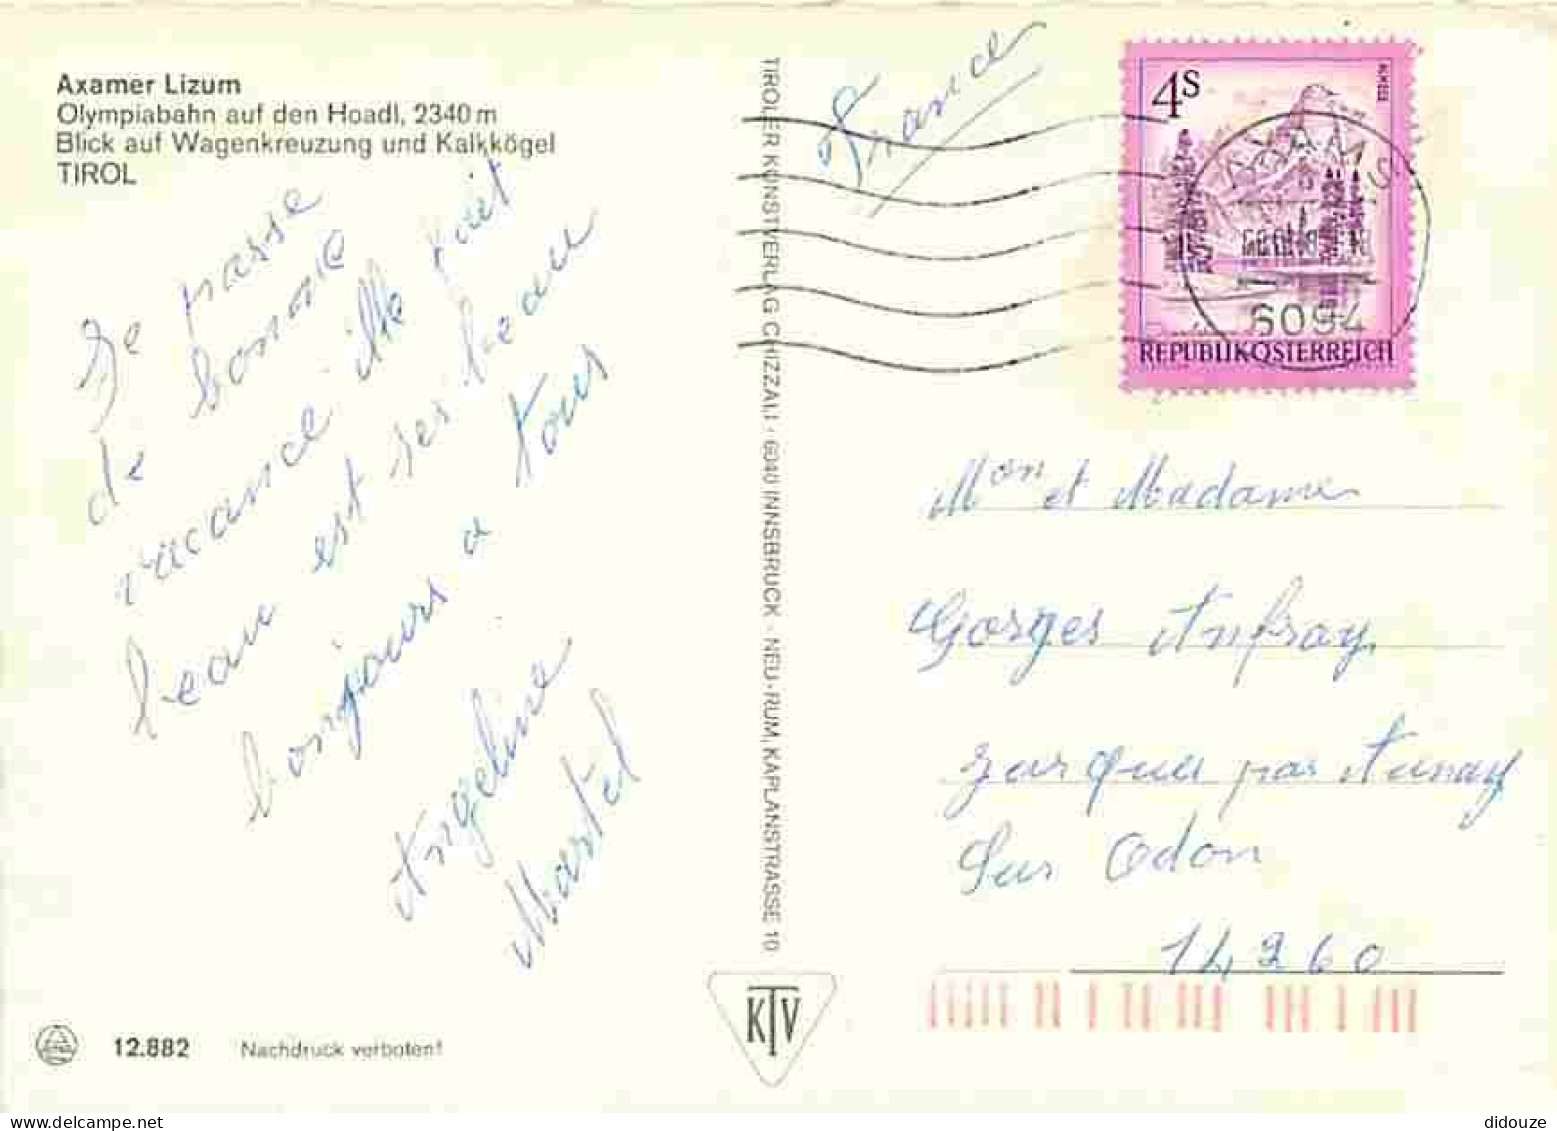 Axamer Lizum
Olympiabahn auf den Hoadl, 2340 m
Blick auf Wagenkreuzung und Kalkkögel
TIROL
Je passe
de bonne
vacance ille fait
beau est ses beau
bonjours a tous
Angeline
Martel
12.882
Nachdruck verboten!
TIROLER KUNSTVERLAG CHIZZALI · 6040 INNSBRUCK - NEU-RUM, KAPLANSTRASSE 10
KTV
France
4S
ALMSEE
REPUBLIK ÖSTERREICH
AXAMS
6094
Mon et Madame
Gorges Anfray
par Aunay
Sur Odon
14260
didouze